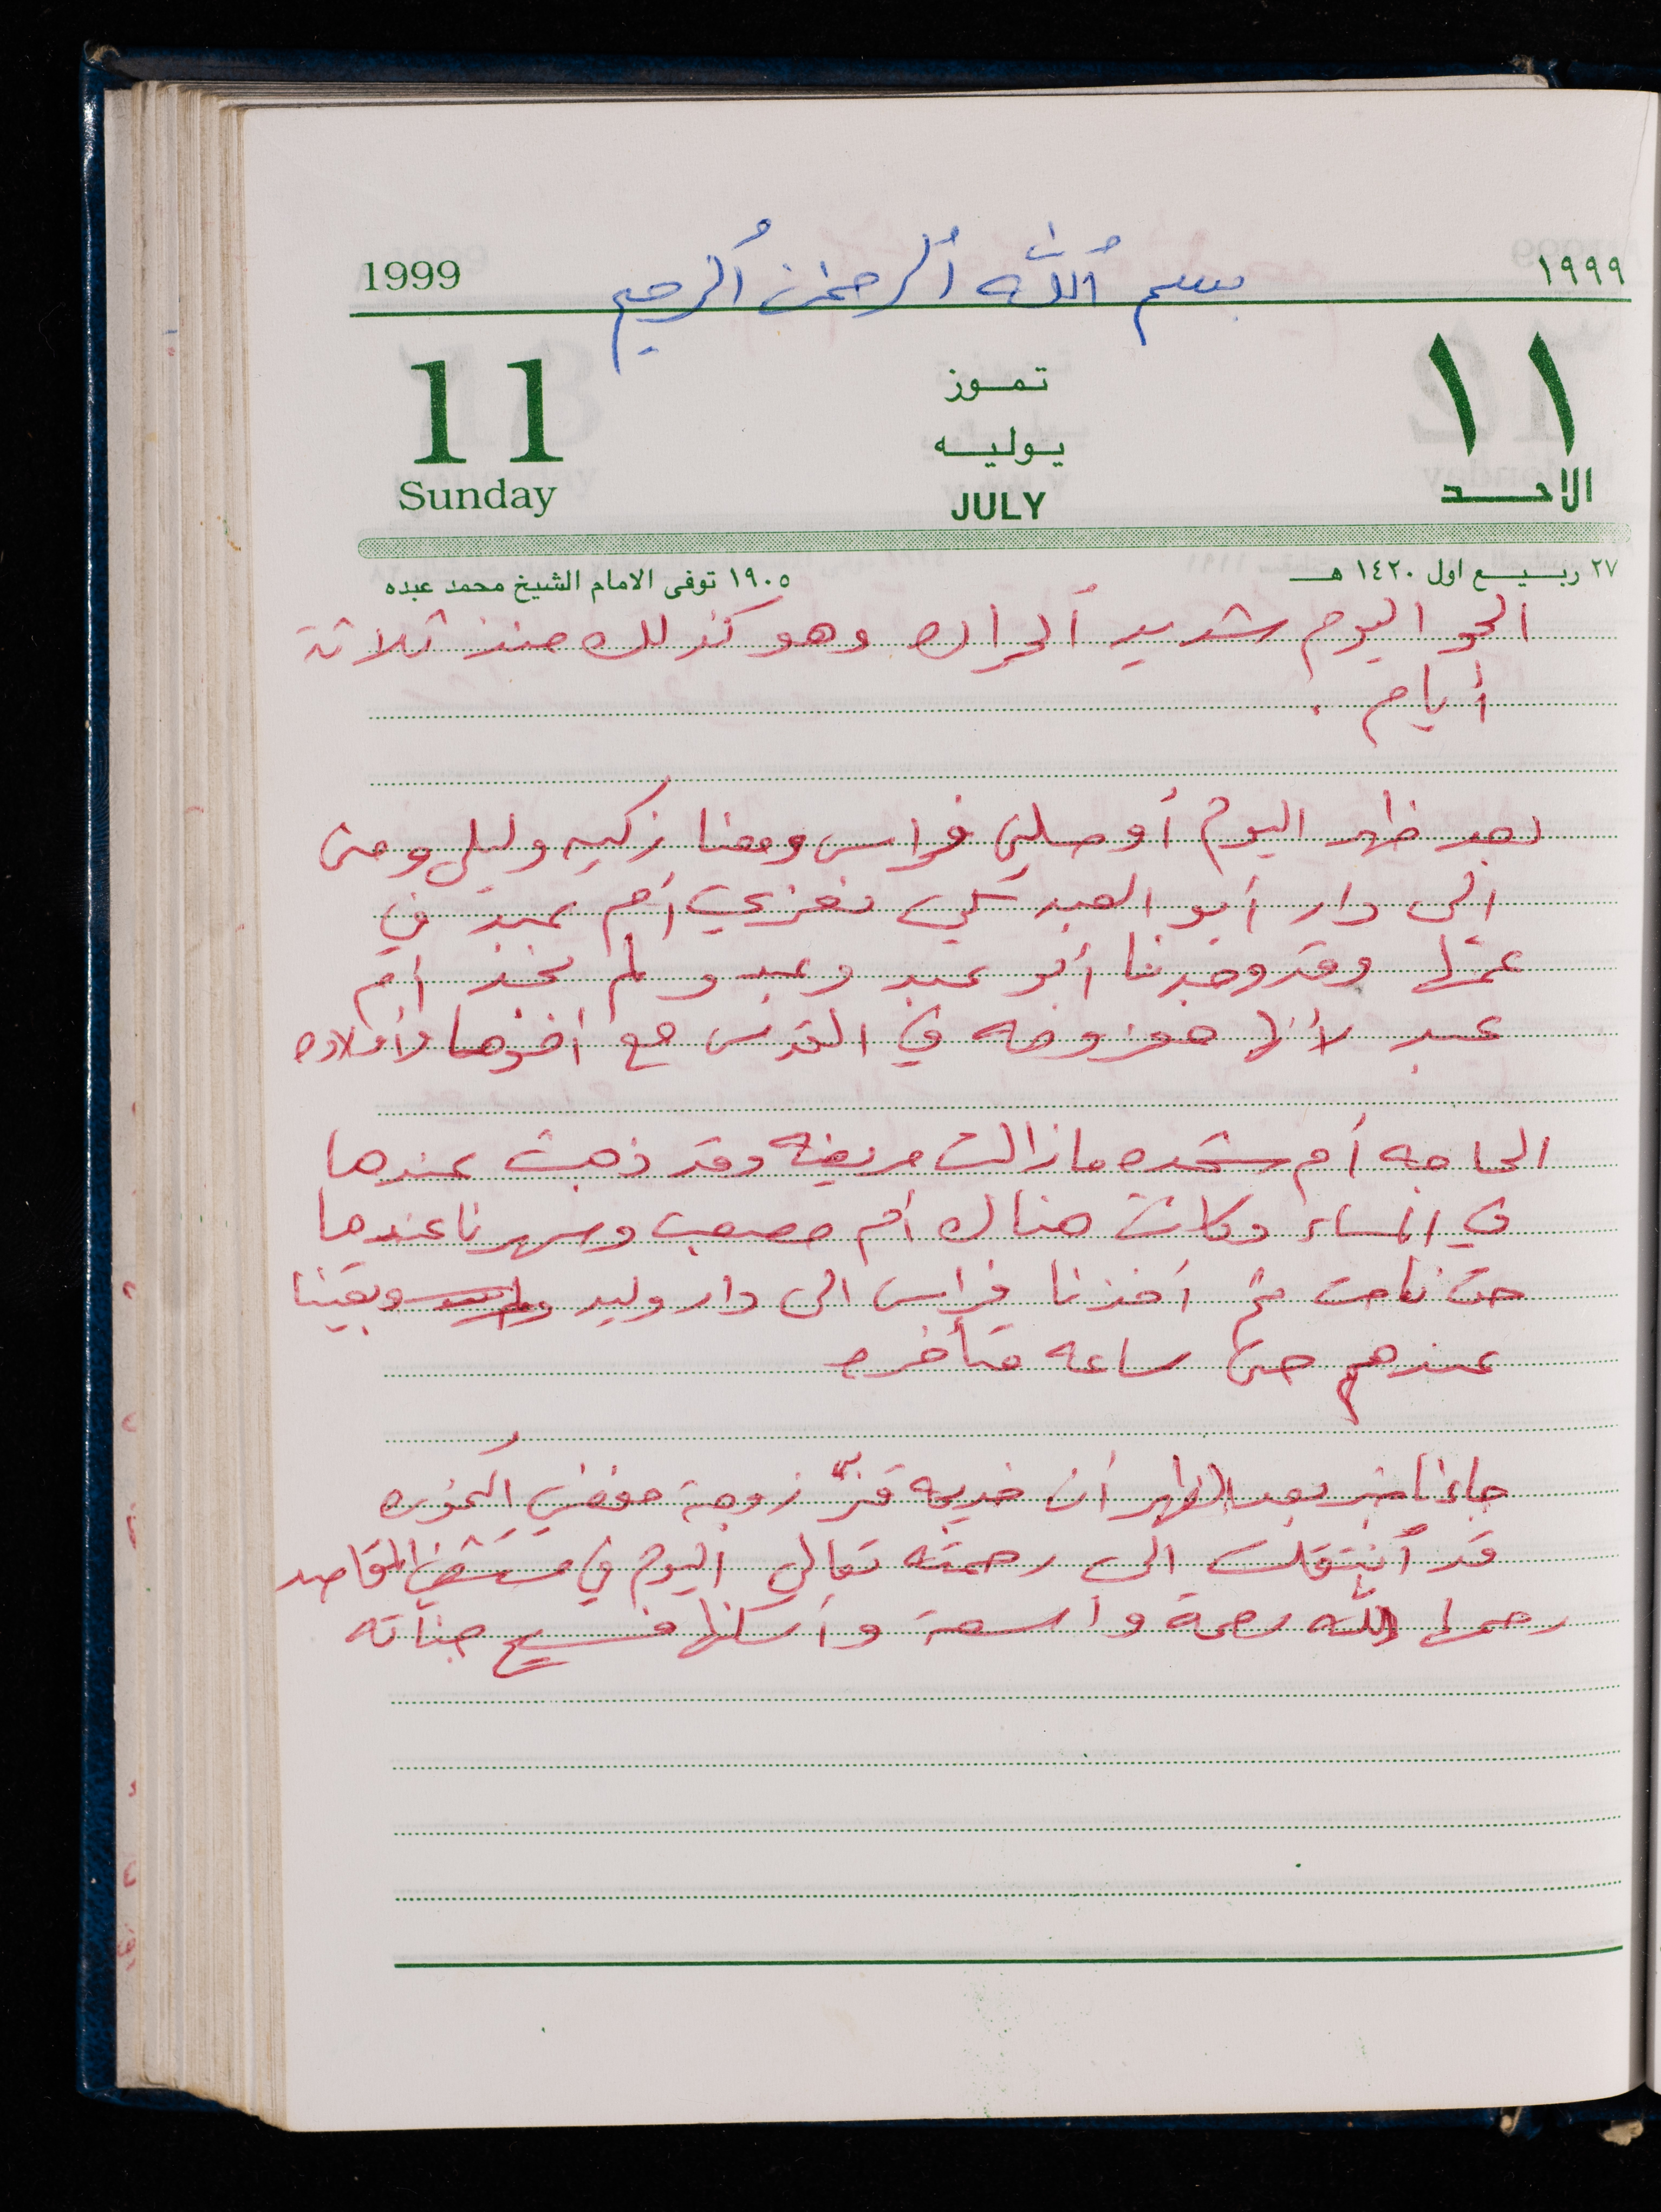 1999 بسم الله الرحمن الرحيم ١٩٩٩
11 تموز ١١
يوليه
Sunday JULY الاحد
٢٧ ربيع اول ١٤٢٠ هـ ١٩٠٥ توفى الامام الشيخ محمد عبده
الجو اليوم شديد الحراره وهو كذلك منذ ثلاثة
أيام .
بعد ظهر اليوم أوصلني فراس ومعنا زكيه وليلى ومنى
الى دار أبو العبد لكي نعزي أم عبد في
عمها وقد وجدنا أبو عبد وعبد ولم نجد أم
عبد لأنها معزومه في القدس مع أخوها وأولاده
الحاجه أم شحده مازالت مريضه وقد ذهبت عندها
في المساء وكانت هناك أم مصعب وسهرنا عندها
حتى نامت ثم أخذنا فراس الى دار وليد وبقينا
عندهم حتى ساعه متأخره
جاءنا خبر بعد الظهر أن خديجه قزّ زوجة
قد أنتقلت الى رحمته تعالى اليوم في مستشفى المقاصد
رحمها الله رحمة واسعة وأسكنها فسيح جناته